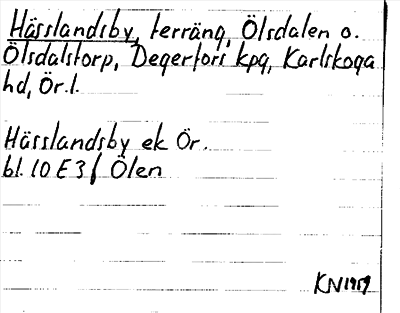 Hässlandsby, terräng, Ölsdalen o.
Ölsdalstorp, Degerfors kpg, Karlskoga
hd, Ör.l.
Hässlandsby ek Ör.
bl. 10 E 3 f Ölen
KN 1959